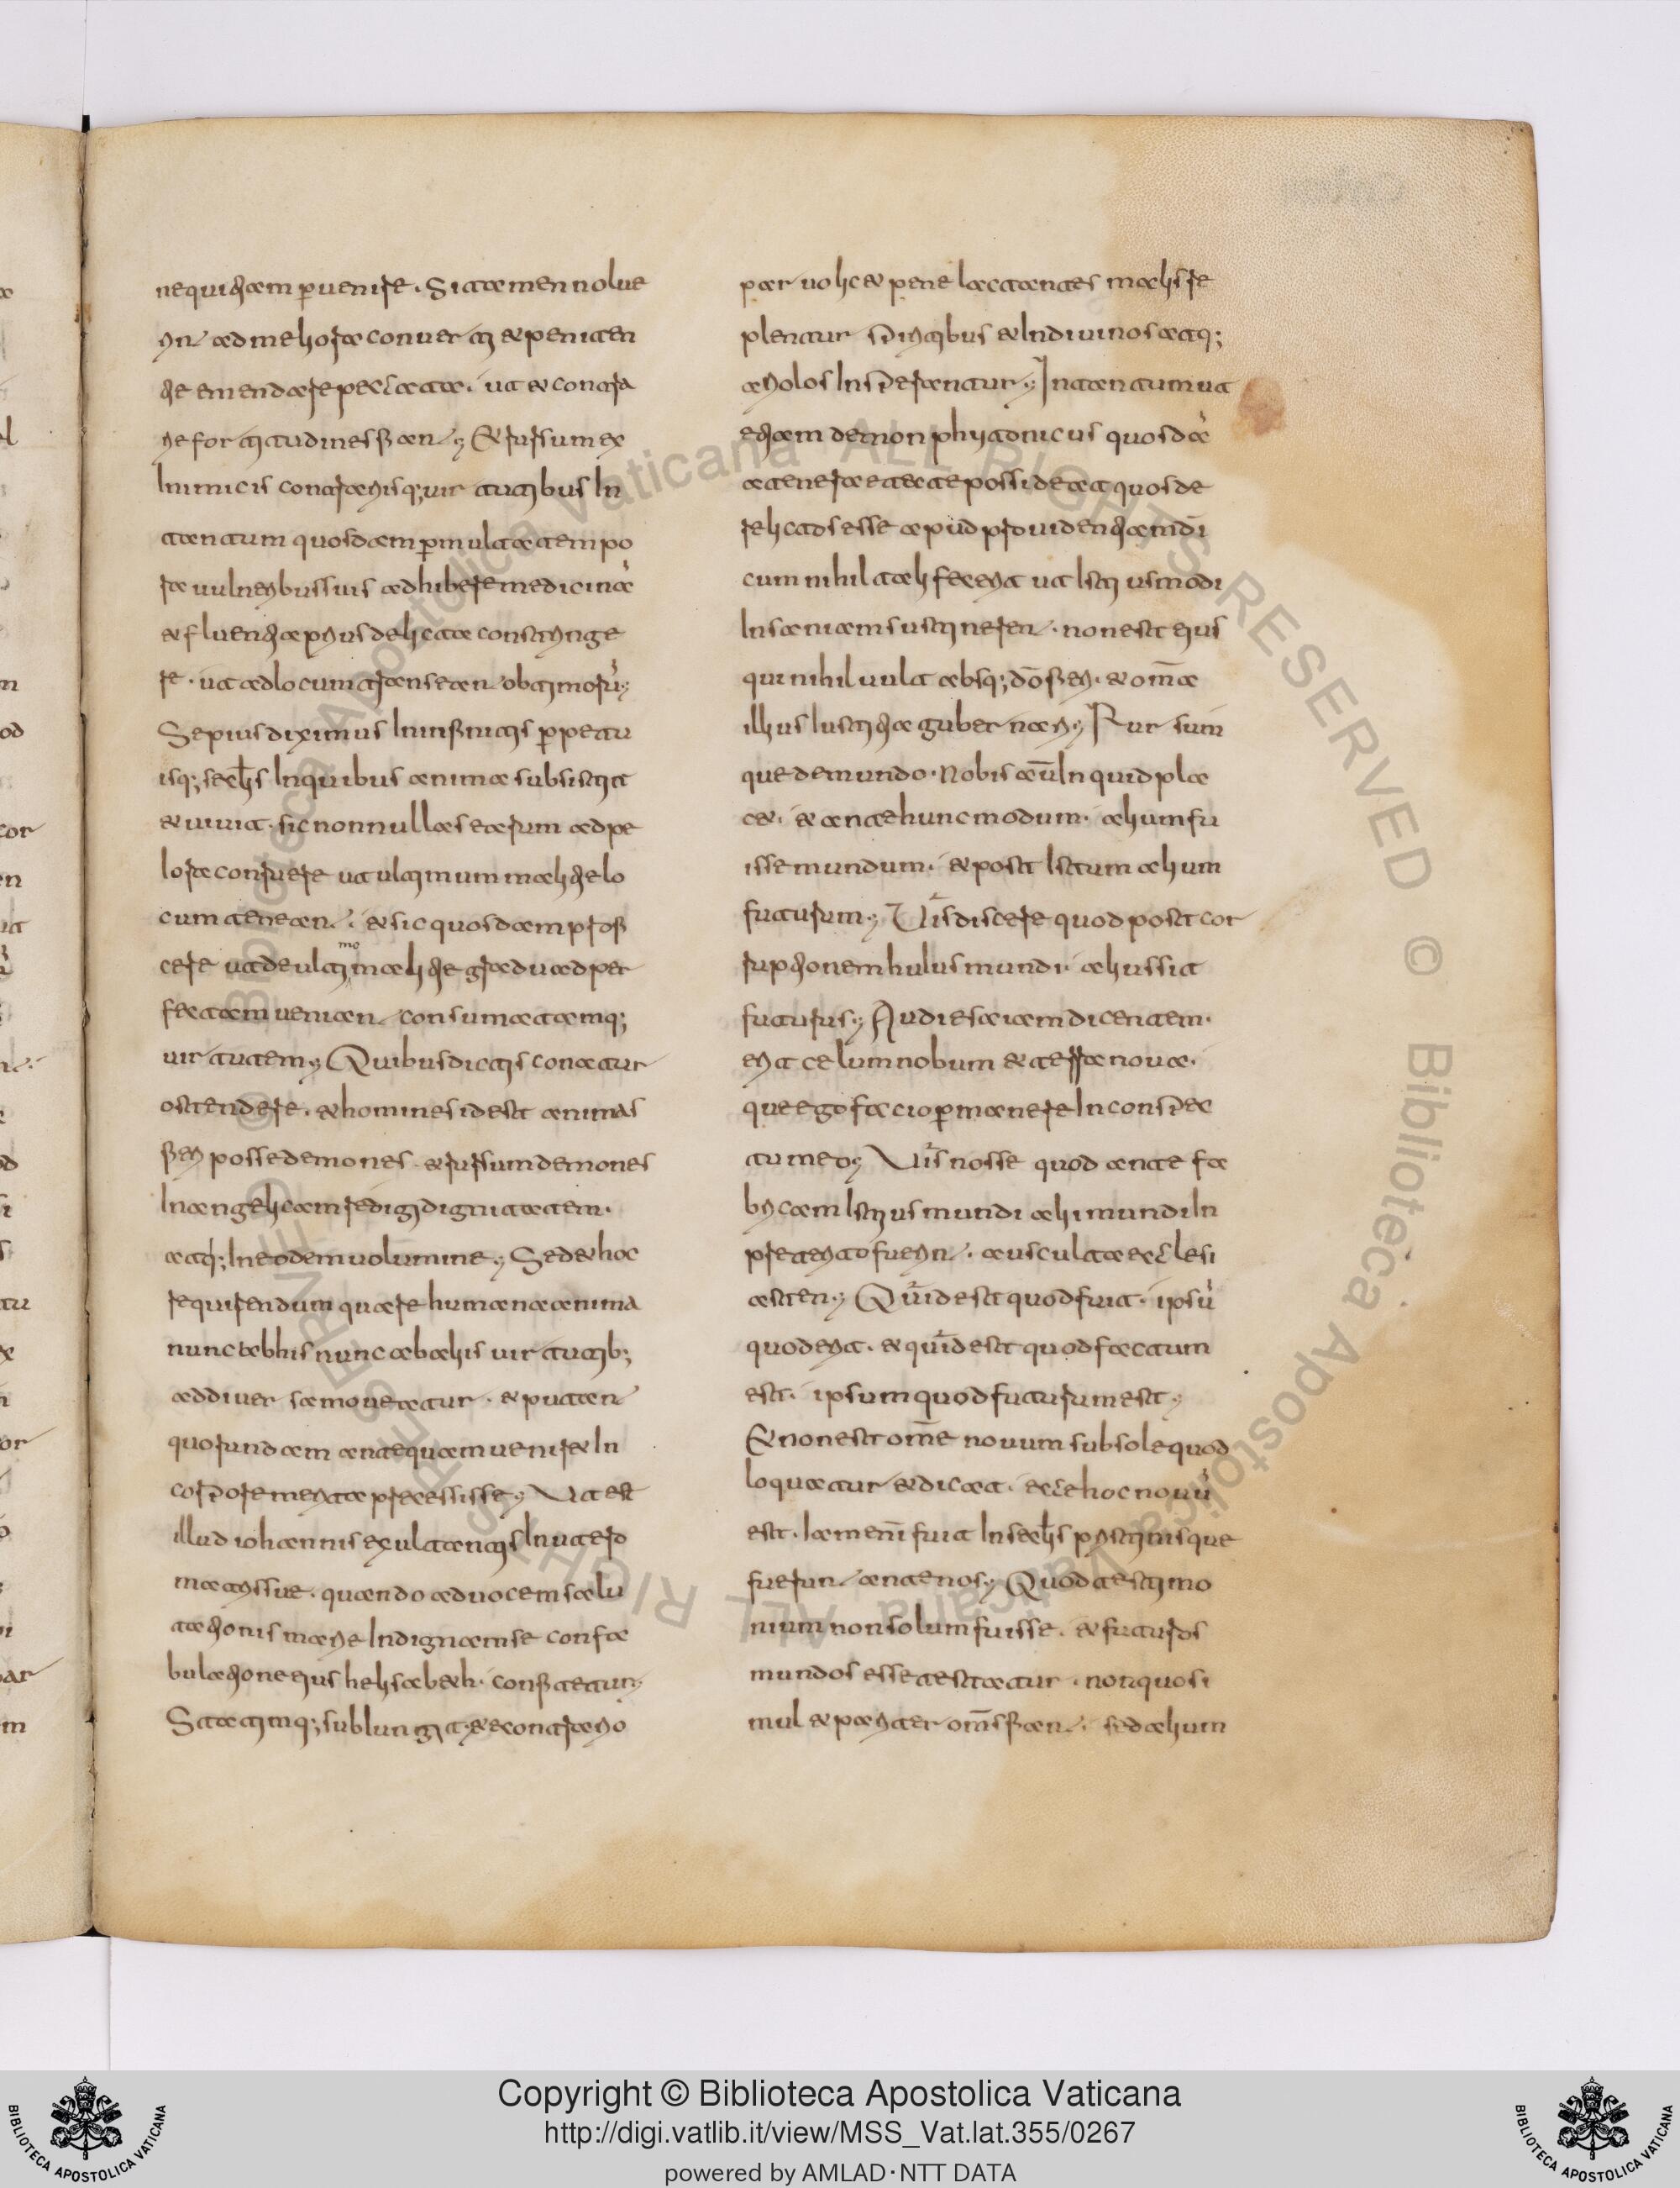 nequitiam p̄uenire. Si tamen nolue
rin̄ ad meliora conuerti et peniten
tie emendare peccata. ut et contra
rie fortitudines fian̄; Et rursum ex
Inimicis contrariisq; uirtutibus In
tantum quosdam p̄ multa tempo
ra uulneribus suis adhibere medicinā
et fluentia prius delicta constringe
re. ut ad locum transean̄ obtimorū;
Sepius diximus In infinitis p̄petu
isq; sec̄lis Inquibus anima subsistit
et uiuit. sic nonnullas earum ad pe
iora conruere ut ultimum malitie lo
cum tenean̄. et sic quosdam profi
cere ut de ultimo malitie gradu ad per
fectam uenian̄ consumatamq;
uirtutem; Quibus dictis conatur
ostendere. et homines id est animas
fieri posse demones. et rursum demones
In angelicam redigi dignitatem.
atq; In eodem uolumine; Sed et hoc
requirendum quare humana anima
nunc ab his nunc ab aliis uirtutib;
ad diuersa moueatur. et putan̄
quorundam antequam uenire In
corpore merita precessisse; Ut est
illud iohannis exultantis In utero
matris sue. quando ad uocem salu
tationis marie Indignam se confa
bulatione eius helisabeth. confitetur;
Statimq; subIungit. et e contrario
paruoli et pene lactantes malis re
plentur sp̄ritibus et In diuinos atq;
ariolos Insp̄irantur; In tantum ut
etiam demon phytonicus quosdā
a tenera etate possideat quos de
relictos esse apud prouidentiam d̄i
cum nihil tali fecerit ut Istiusmodi
Insaniam sustineren̄. non est eius
qui nihil uult absq; dō fieri. et om̄a
illius Iustitia gubernari; Rursum
que de mundo. Nobis aūt Inquid pla
cet. et ante hunc modum. alium fu
isse mundum. et post Istum alium
futurum; Uis discere quod post cor
ruptionem huius mundi. alius sit
futurus; Audi esaiam dicentem.
erit celum nobum et terra noua.
que ego facio p̄manere Inconsp̄ec
tu meo; Uis nosse quod ante fa
bricam Istius mundi alii mundi In
preterito fuerin̄. ausculta ecclesi
asten; Quid est quod fuit. ipsū
quod erit. et quid est quod factum
est. ipsum quod futurum est;
Et non est om̄e nouum sub sole quod
loquatur et dicat. ecce hoc nouū
est. Iam enī fuit In sec̄lis pristinis que
fuerun̄ ante nos; Quod testimo
nium non solum fuisse. et futuros
mundos esse testatur. non quo si
mul et pariter om̄s fian̄. sed alium
© Biblioteca Apostolica Vaticana ALL RIGHTS RESERVED
© Biblioteca Apostolica Vaticana ALL RIGHTS RESERVED
Copyright © Biblioteca Apostolica Vaticana
http://digi.vatlib.it/view/MSS_Vat.lat.355/0267
powered by AMLAD·NTT DATA
BIBLIOTECA APOSTOLICA VATICANA
BIBLIOTECA APOSTOLICA VATICANA